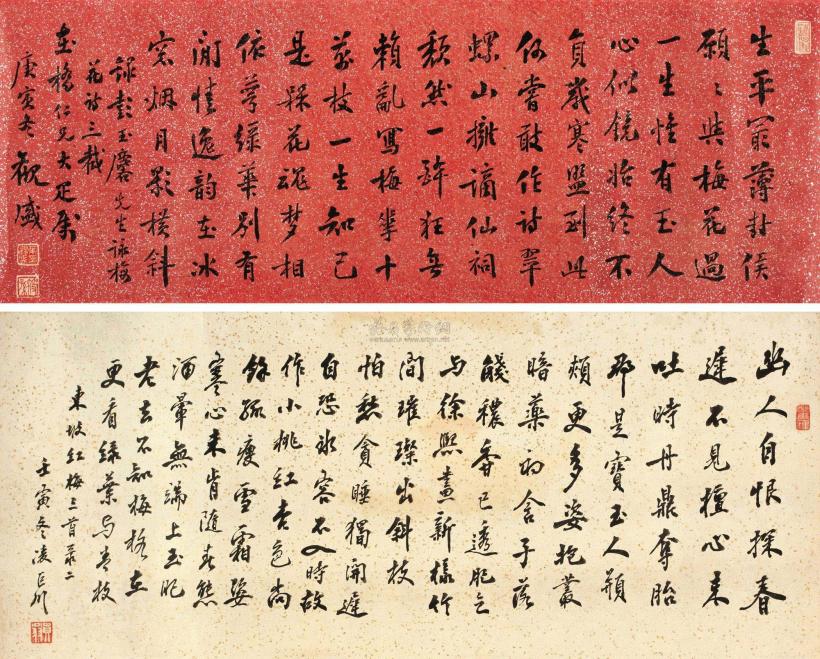 生平最薄封侯
願〻與梅花過
一生惟有玉人
心似鏡始終不
負歲寒盟到此
何嘗敢作詩翠
螺山擁謫仙祠
頹然一醉狂無
賴亂寫梅花十
萬枝一生知己
是梅花魂夢相
依萼綠華別有
閒情逸韻在冰
窓烟月影橫斜
錄彭玉麐先生詠梅
花詩三截
橋仁兄大疋屬
庚寅冬
幽人自恨探春
遲不見檀心未
吐時丹鼎奪胎
那是寶玉人頩
頰更多姿抱叢
暗蕊初含子落
盞穠香已透肌乞
与徐熙畫新樣竹
間璀璨出斜枝
怕愁貪睡獨開遲
自恐冰容不入時故
作小桃紅杏色尚
餘孤瘦雪霜姿
寒心未肯隨春態
酒暈無端上玉肌
老去不知梅格在
更看綠葉与青枝
東坡紅梅三首录二
壬寅冬凌巨川